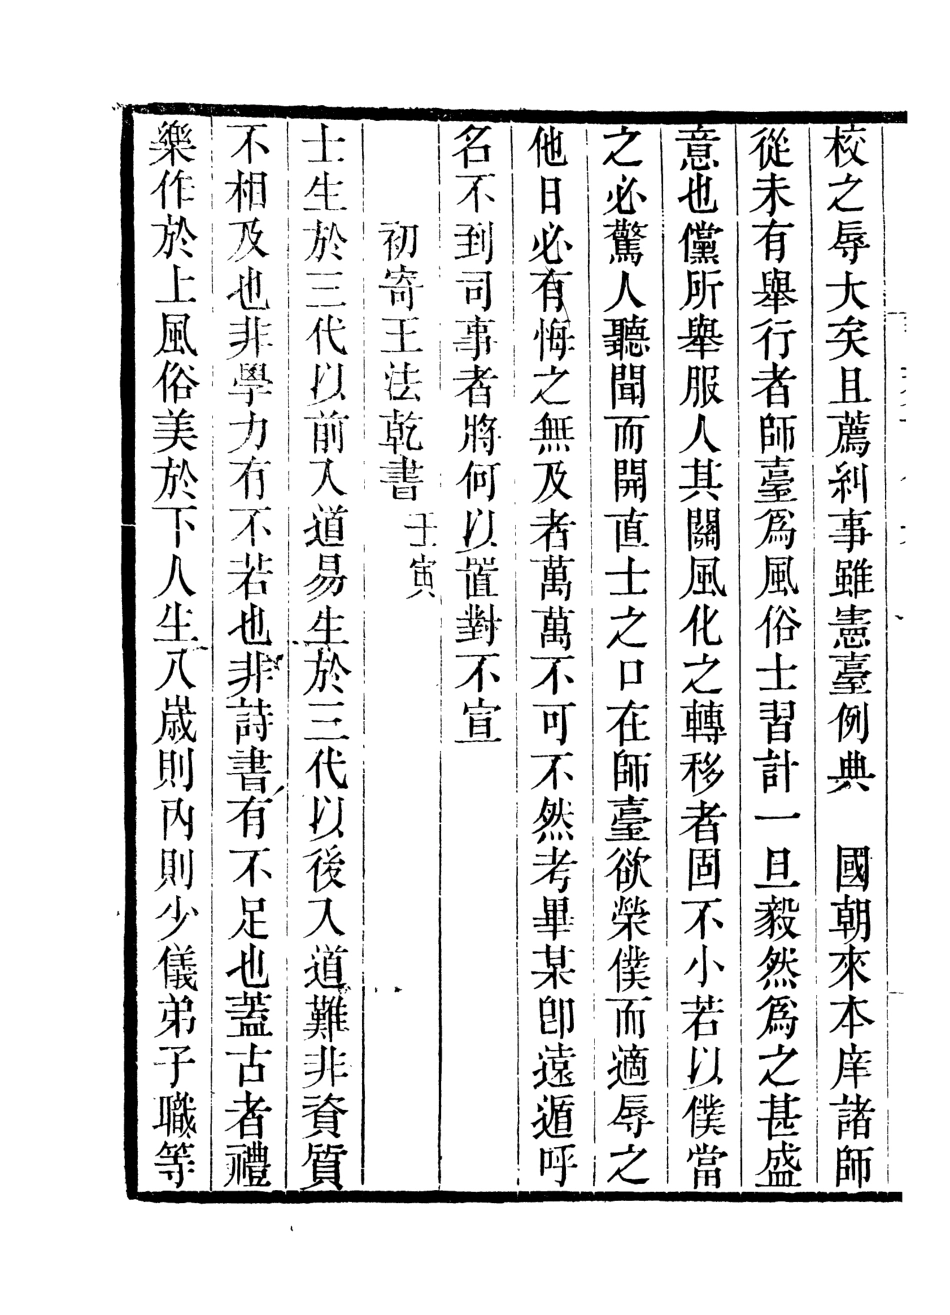 校之辱大矣且薦糾事雖憲臺例典　國朝來本庠諸師
從未有舉行者師臺爲風俗士習計一旦毅然爲之甚盛
意也儻所舉服人其關風化之轉移者固不小若以僕當
之必驚人聽聞而開直士之口在師臺欲榮僕而適辱之
他日必有悔之無及者萬萬不可不然考畢某卽遠遁呼
名不到司事者將何以置對不宣
初寄王法乾書 壬寅
士生於三代以前入道易生於三代以後入道難非資質
不相及也非學力有不若也非詩書有不足也蓋古者禮
樂作於上風俗美於下人生八歲則內則少儀弟子職等